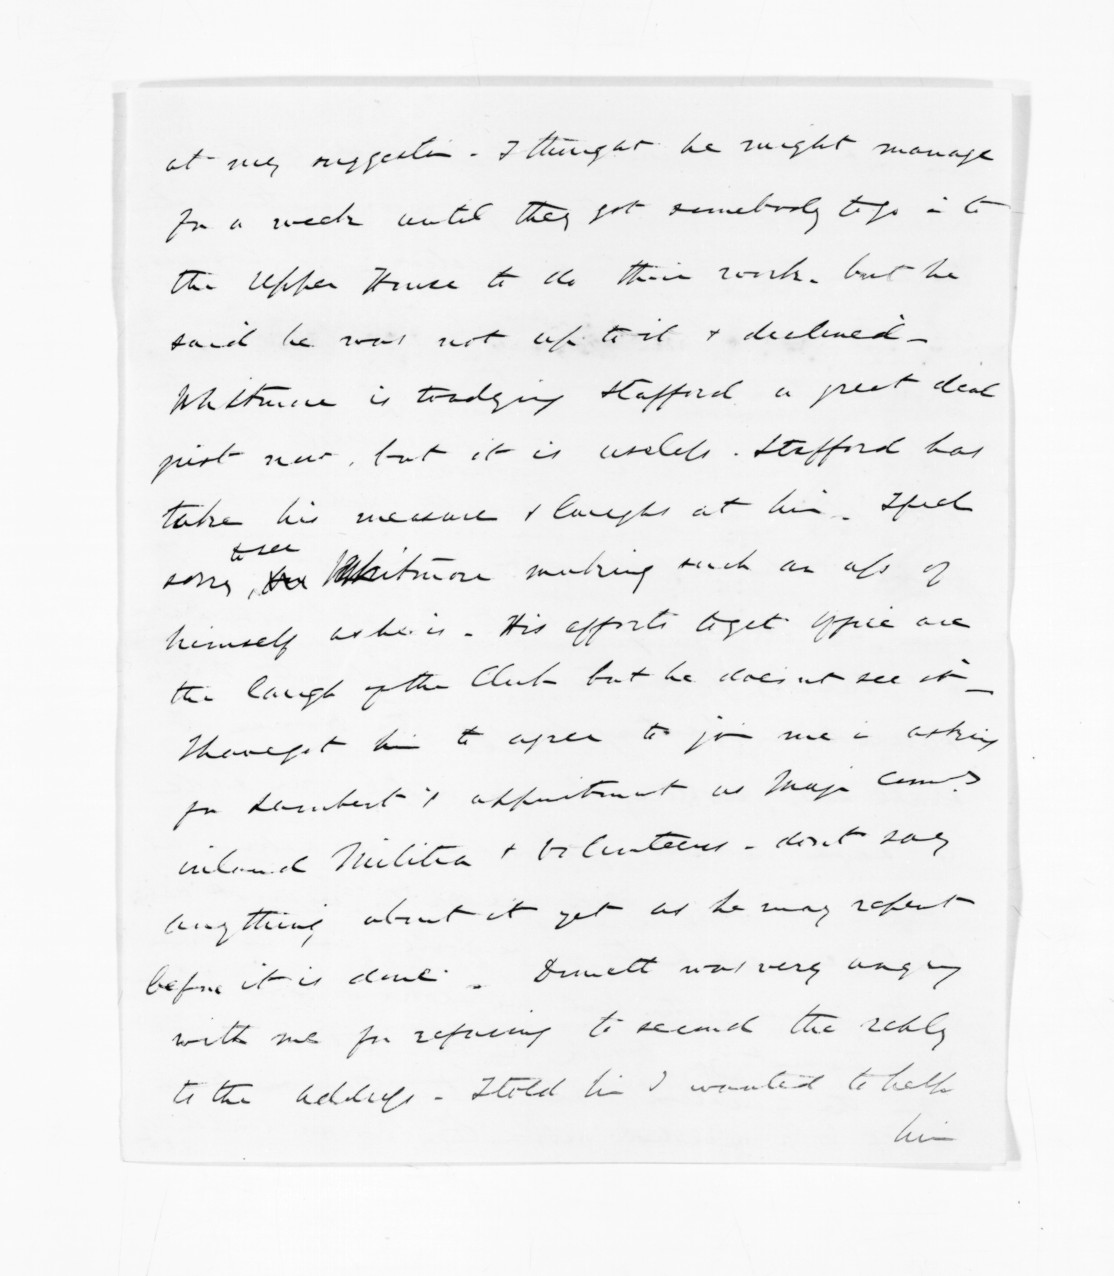 at my suggestion - I thought he might manage
for a week until they got somebody to go in to
the Upper House to do their work - but he
said he was not up to it & declined -
Whitmore is toadying Stafford a great deal
just now, but it is useless. Stafford has
taken his measure & laughs at him - I feel
sorry to see Whitmore making such an ass of
himself as he is - His efforts to get office are
the laugh of the Club but he does not see it -
I have got him to agree to join me in asking
for Lambert's appointment as Major Comd
inland Militia & Volunteers - don't say
anything about it yet as he may repent
before it is done - was very angry
with me for refusing to second the reply
to the address - I told him I wanted to help
him